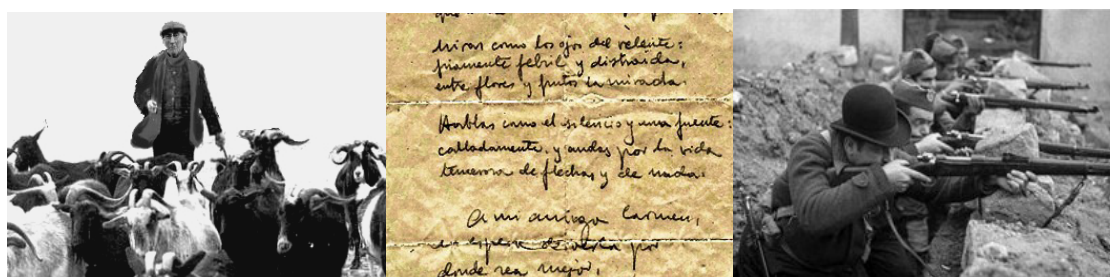 Miras como los ojos del relente:
fríamente febril y distraída,
entre flores y frutos la mirada.
Hablas como el silencio y una fuente:
calladamente, y andas por la vida
temerosa de flechas y de nada.
A mi amiga Carmen,
en espera de verla por
donde sea mejor,